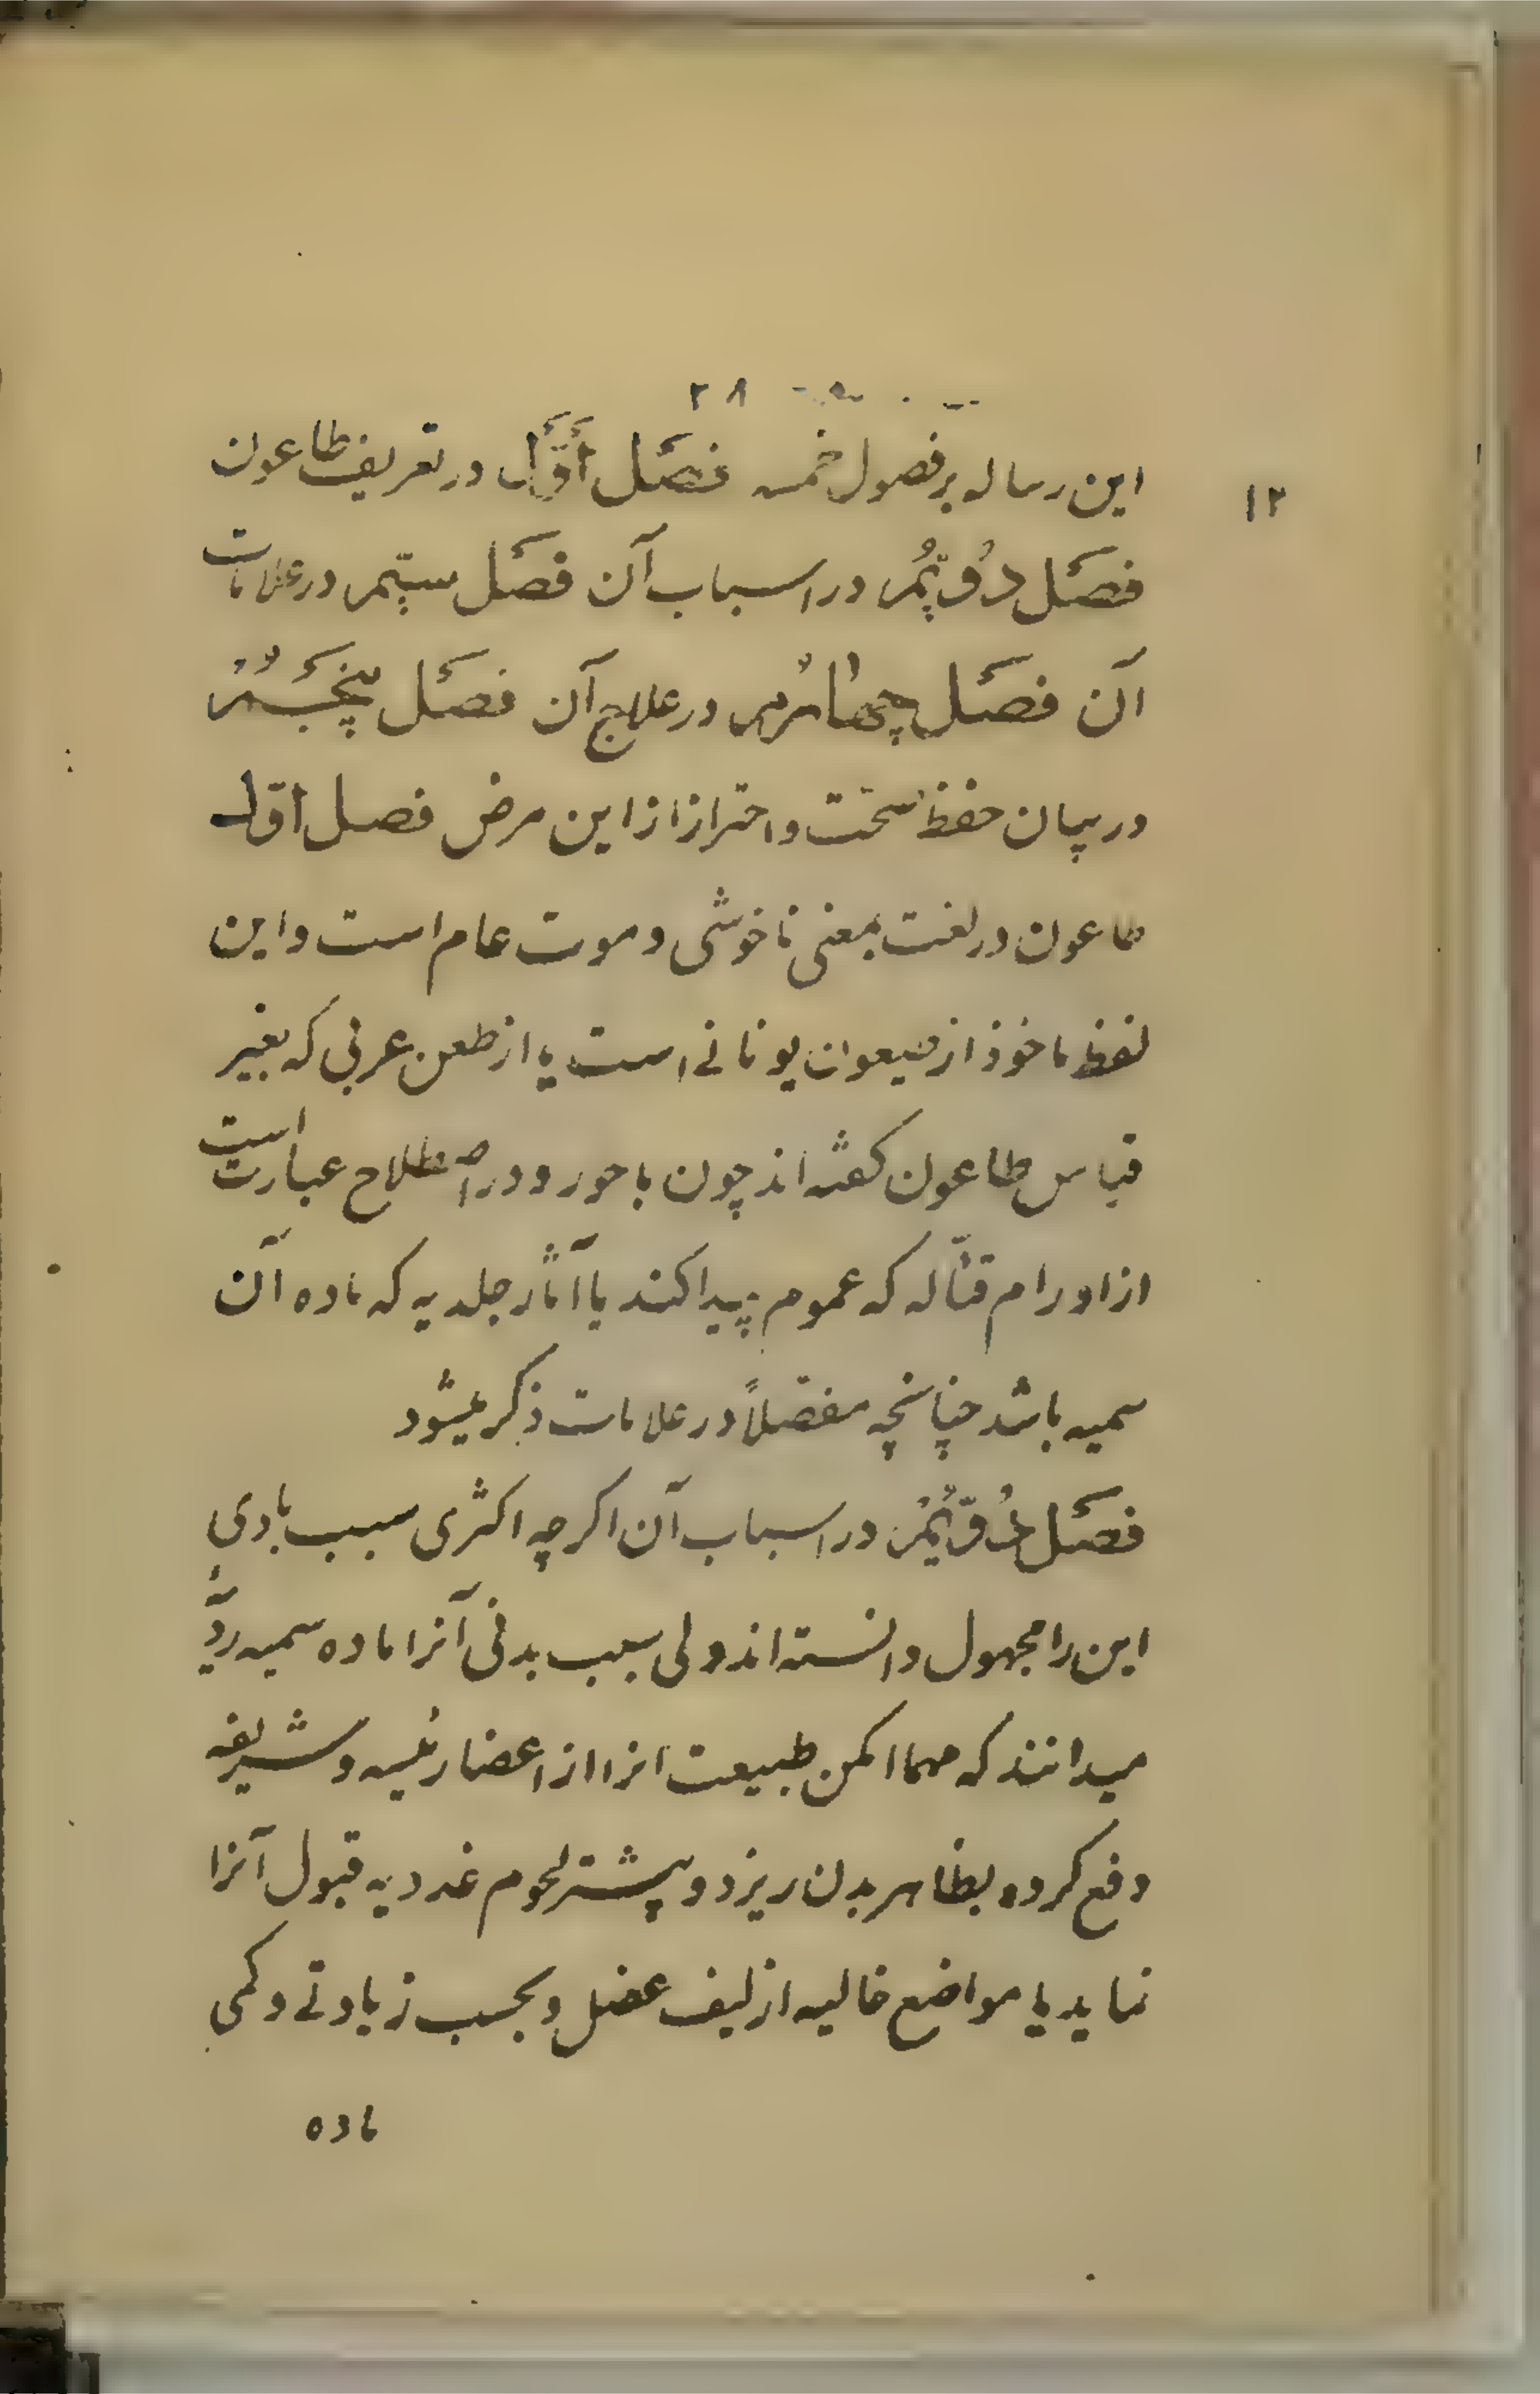 ۲۸
۱۲
این رساله بر فصول خمسه فصَل أوَّل در تعریف طاعون
فصَل دُوّیُّمُ در اسباب آن فصَل سیّم در علامات
آن فصَل چهارم در علاج آن فصَل پنجَمُ
در بیان حفظ صحّت و احتراز از این مرض فصل اوّل
طاعون در لغت بمعنی ناخوشی و موت عام است و این
لفظ ماخوذ از یونانی است یا از طعن عربی که بغیر
قیاس طاعون کفته اند چون باحور و در اصطلاح عبارت است
از اورام قتّاله که عموم پیدا کند یا آثار جلدیه که ماده آن
سمیه باشد چنانچه مفصّلاً در علامات ذکر میشود
فصَل دُوّیُّمُ در اسباب آن اکرچه اکثری سبب بادی
این را مجهول دانسته اند ولی سبب بدنی آنرا ماده سمیه ردیّه
میدانند که مهما امکن طبیعت انرا از اعضا رئیسه و شریفه
دفع کرده بظاهر بدن ریزد و بیشتر لحوم غددیه قبول آنرا
نماید یا مواضع خالیه از لیف عضل و بحسب زیادتی و کمی
ماده